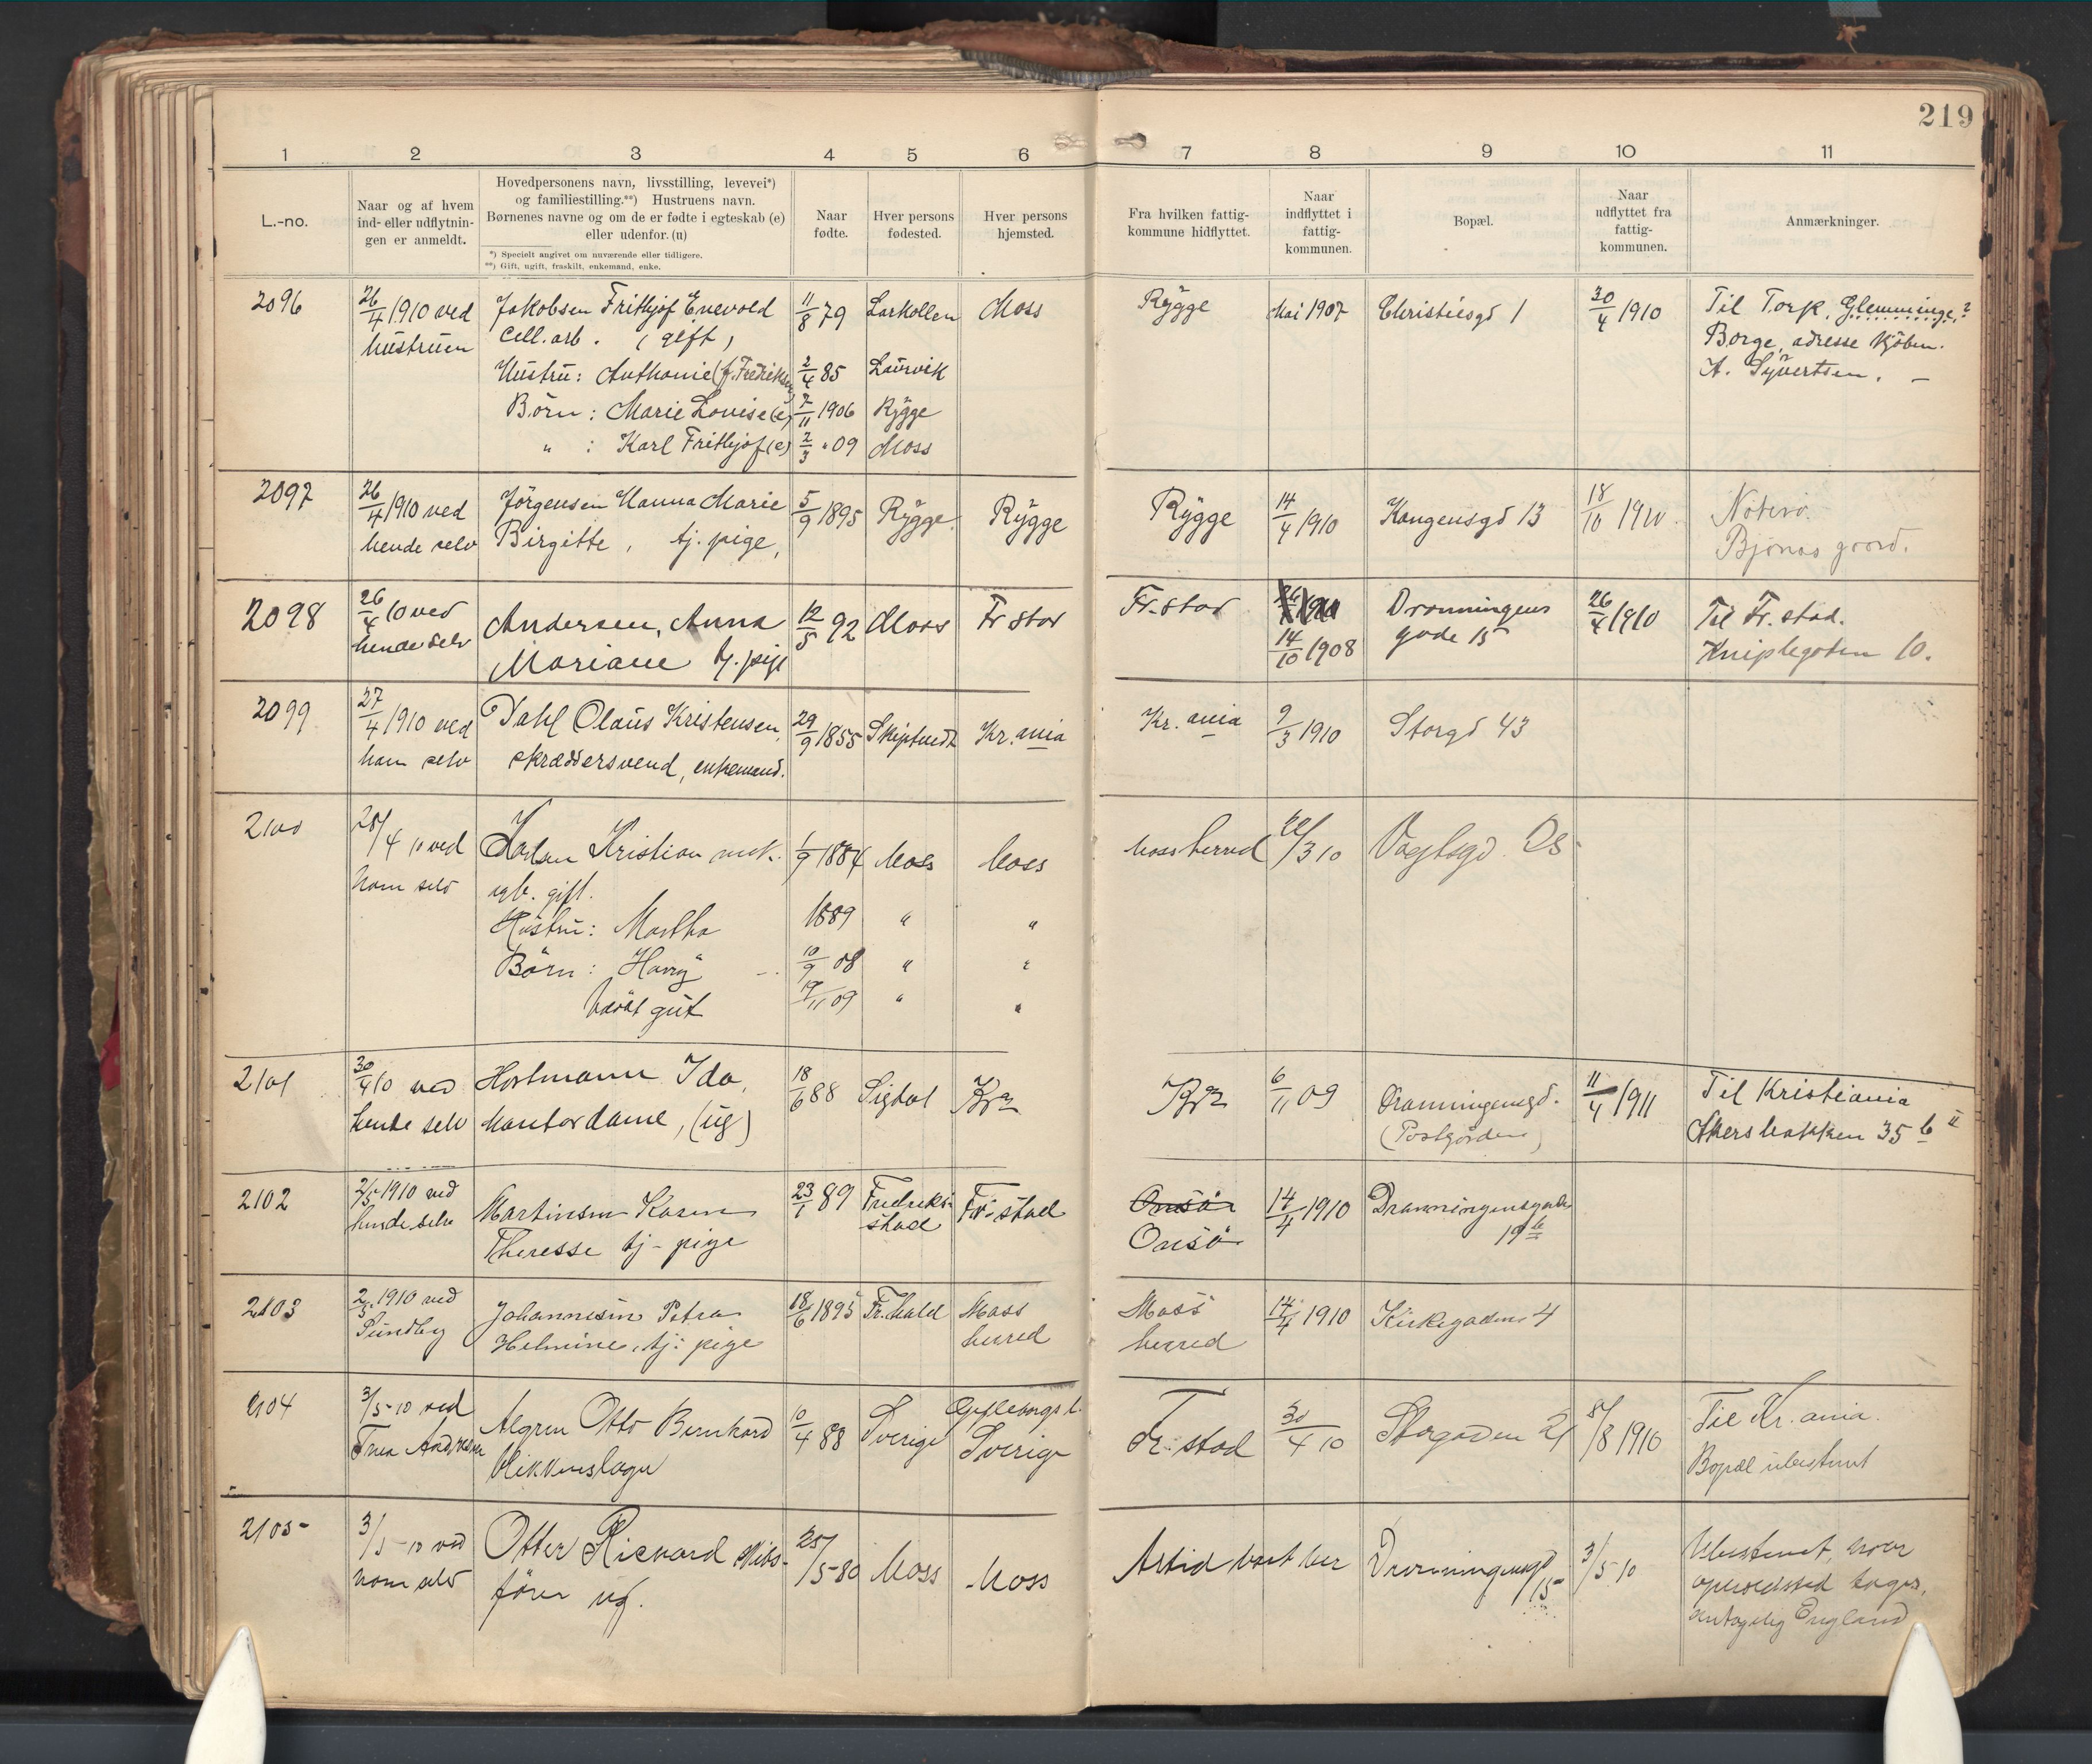 219
1 2 3 4 5 6 7 8 9 10 11
L.-no.
Naar og af hvem
ind- eller udflytnin-
gen er anmeldt.
Hovedpersonens navn, livsstilling, levevei*)
og familiestilling.**) Hustruens navn.
Børnenes navne og om de er fødte i egteskab (e)
eller udenfor. (u)
*) Specielt angivet om nuværende eller tidligere.
**) Gift, ugift, fraskilt, enkemand, enke.
Naar
fødte.
Hver persons
fødested.
Hver persons
hjemsted.
Fra hvilken fattig-
kommune hidflyttet.
Naar
indflyttet i
fattig-
kommunen.
Bopæl.
Naar
udflyttet fra
fattig-
kommunen.
Anmærkninger.
2096 26/4 1910 ved Jakobsen Frithjof Enevold 11/8 79 Larkollen Moss Rygge Mai 1907 Christiesgd 1 30/4 1910 Til Torp, Glemminge?
hustruen Cell. arb. (gift) Borge, adresse kjöbm.
Hustru: Anthonie (f. Fredriksen) 2/4 85 Laurvik A. Syvertsen. –
Börn: Marie Lovise (e) 7/11 1906 Rygge
" : Karl Frithjof (e) 2/3 "09 Moss
2097 26/4 1910 ved Jörgensen Hanna Marie 5/9 1895 Rygge Rygge Rygge 14/4 1910 Kongensgd 13 18/10 1910.
hende selv Birgitte, tj. pige, gaard.
2098 26/4 10 ved Andersen, Anna 12/5 92 Moss Fr stad Fr. stad Dronningens 26/4 1910 Til Fr. stad.
hende selv Mariane tj. pige 14/10 1908 gade 15 Kniplegaden 10.
2099 27/4 1910 ved Dahl Olaus Kristensen, 29/9 1855 Skiptvedt Kr. ania Kr. ania 9/3 1910 Storgd 43
ham selv skræddersvend, enkemand.
2100 28/4 10 ved Karlsen Kristian 1/9 1884 Moss Moss Moss herred /3 10 Vogtsgd.
ham selv arb. gift.
Hustru: Martha 1889 " "
Börn: Harry 10/9 08 " "
udöbt gut 19/11 09 " "
2101 30/4 10 ved Hortmann Ida, 18/6 88 Sigdal Kra Kra 6/11 09 Dronningensgd. 11/4 1911 Til Kristiania
hende selv kontordame, (ug) (Postgården) Akersbakken 35 b II
2102 2/5 1910 ved Martinsen Karen 23/1 89 Fredrik- Fr. stad Onsö 14/4 1910 Dronningensgade
hende selv Theresse tj- pige stad Onsö 19 b
2103 2/5 1910 ved Johannesen Petra 18/6 1895 Fr. hald Moss Moss 14/4 1910 Kirkegaden 4
Sundby Helmine, tj: pige herred herred
2104 3/5-10 ved Algren Otto Bernhard 10/4 88 Sverige Gefleborgs l. Fr. stad 30/4 10 Storgaden 21 5/8 1910 Til Kr. ania.
Fru Andresen blikkenslager Sverige Bopæl ubestemt
2105 3/5-10 ved Otter Rickard Skibs- 25/5-80 Moss Moss Altid boet her Dronningensgd 3/5 10 Ubestemt, hvor
ham selv förer ug. 15 opholdssted tages,
antagelig England